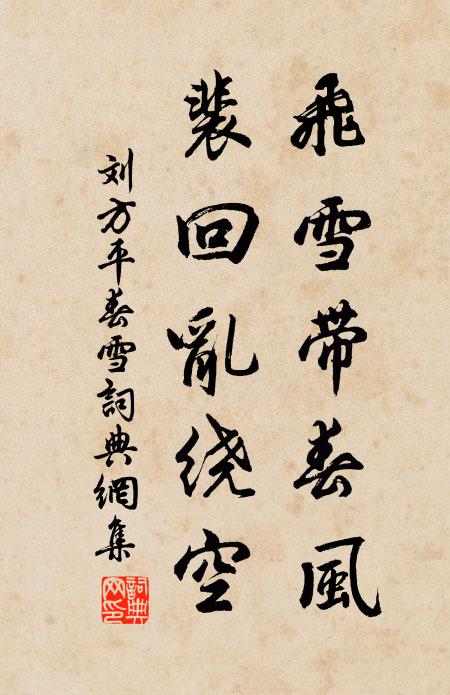 飛雪带春風
裴回亂绕空
刘方平春雪詞典網集
詞典网印